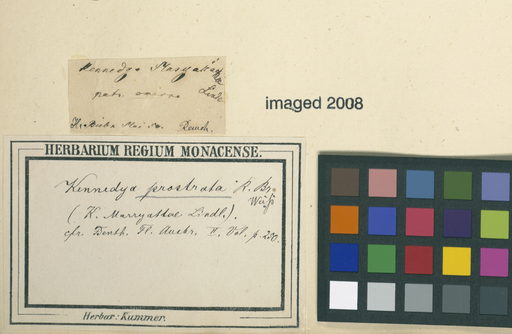 Kennedya Maryattae
Lindl
imaged 2008
HERBARIUM REGIUM MONACENSE.
Kennedya prostrata R. Br.
(K. Marryattae Lindl.).
cfr. Benth. Fl. Austr. II. Vol. p. 250.
Herbar: Kummer.